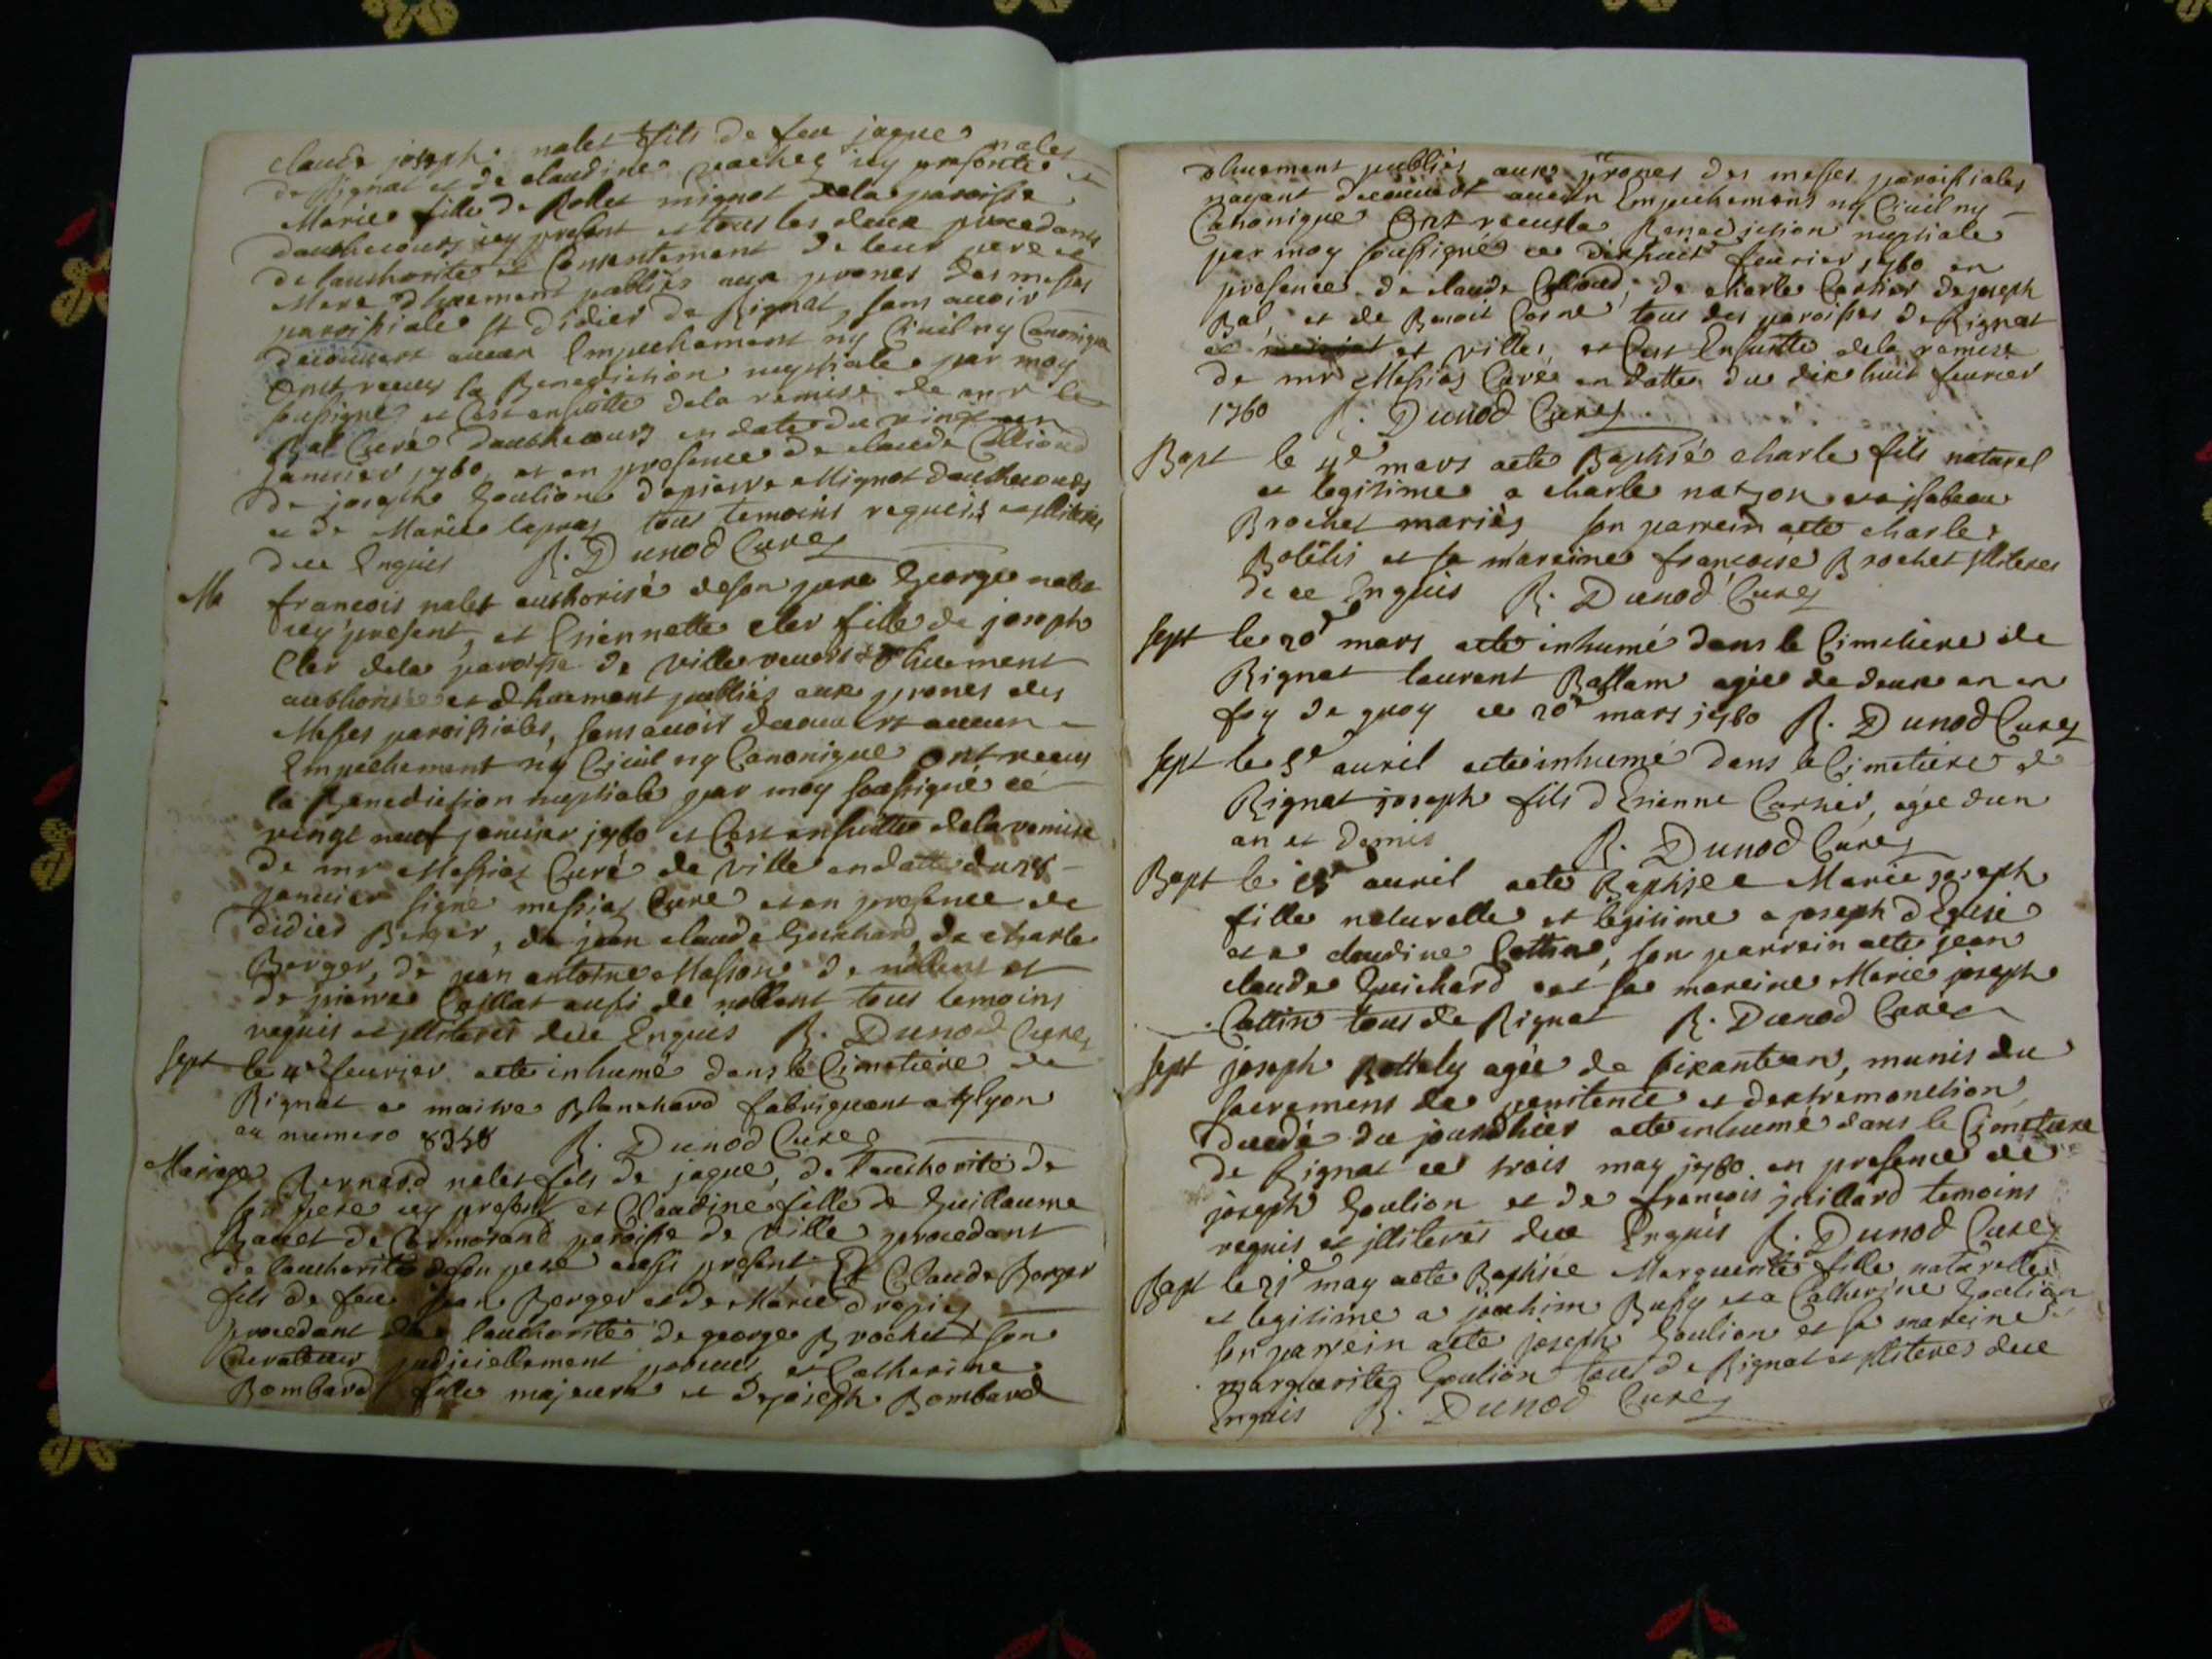 claude joseph nalet fils de feu jaque nalet
de Rignat et de claudine pachez icy presente et
Marie fille de Rollet mignot dela paroisse
dauthecourt icy present et tous les deux procedants
de lauthorité et Consentement de leur pere et
Mere dhuement publiés aux prones des messes
paroissiale St didier de Rignat, sans avoir
decouvert aucun Empechement ny Civil ny Canonique
Ont receus la Benediction nuptiale par moy
soussigné et Cest ensuitte dela remise de mr le
Bal Curé dauthecourt en date du vingt
janvier 1760, et en presence de claude Colliond
de joseph Goulion de pierre Mignot dauthecourt
et de Marie tous temoins requis et illiteres
dece Enquis R. Dunod Curé
M francois nalet authorisé deson pere George nalet
icy present, et Etiennette cler fille de joseph
Cler dela paroisse de Ville dhuement
authorisée et dhuement publiés aux prones des
Messes paroissiales, sans avoir decouvert aucun
Empechement ny Civil ny Canonique ont receus
la Benediction nuptiale par moy soussigné ce
vingt neuf janvier 1760 et Cest ensuitte dela remise
de mr Messiat Curé de Ville en datte du
janvier signé messiat Curé et en presence de
didier Berger, de jean claude Guichard, de charle
Berger, de jean antoine Masson de nollent et
de pierre Caillat aussi de nollent tous temoins
requis et illiteres dece Enquis R. Dunod Curé
sept le 4e fevrier aeté inhumé dans le Cimetiere de
Rignat a maitre Blanchard fabriquant a lyon
au numero 8358 R. Dunod Curé
Mariage Bernard nalet fils de jaque, de l'authorité de
son pere icy present et Claudine fille de Guillaume
de Cormorand paroisse de Ville procedant
de lauthorité deson pere aussi present Et Claude Berger
fils de feu jean Berger et de Marie
procedant de lauthorité de george Brochet son
Curateur judiciellement et Catherine
Bombard fille majeure et de joseph Bombard
dhuement publiés aux prones des messes paroissiales
nayant decouvert aucun Empechement ny Civil ny
Canonique Ont receus la Benediction nuptiale
par moy soussigné ce dixhuit fevrier 1760 en
presence de claude Colliond, de charle Carrier de joseph
Bal, et de Benoit Corne tous des paroisses de Rignat
et et Ville, et Cest Ensuitte dela remise
de mr Messiat Curé en datte du dix huit fevrier
1760 R. Dunod Curé
Bapt le 4e mars aeté Baptisé charle fils naturel
et legitime a charle natzon et a isabeau
Brochet mariés son parrein aeté charle
Bolétis et sa mareine francoise Brochet illiteres
de ce Enquis R. Dunod Curé
sept le 20e mars aeté inhumé dans le Cimetiere de
Rignat laurent Ballam agée de deux an en
foy de quoy ce 20e mars 1760 R. Dunod Curé
sept le 5e avril aeté inhumé dans le Cimetiere de
Rignat joseph fils d Etienne Carrier, agée dun
an et demis R. Dunod Curé
Bapt le 15e avril aeté Baptisée Marie joseph
fille naturelle et legitime a joseph dEglise
et a claudine Cottin, son parrein aeté jean
claude Guichard et sa mareine Marie joseph
Cottin tous de Rignat R. Dunod Curé
sept joseph Bottely agée de sixante an, munis du
sacrement de penitence et dextremonction,
decedé du jourdhier aeté inhumé dans le Cimetiere
de Rignat ce trois may 1760 en presence de
joseph Goulion et de francois juillard temoins
requis et illiteres dece Enquis R. Dunod Curé
Bapt le 21e may aeté Baptisée Marguerite fille naturelle
et legitime a joachim Bussy et a Catherine Goulion
son parrein aeté joseph Goulion et sa mareine
marguerite Goulion tous de Rignat et illiteres dece
Enquis R. Dunod Curé